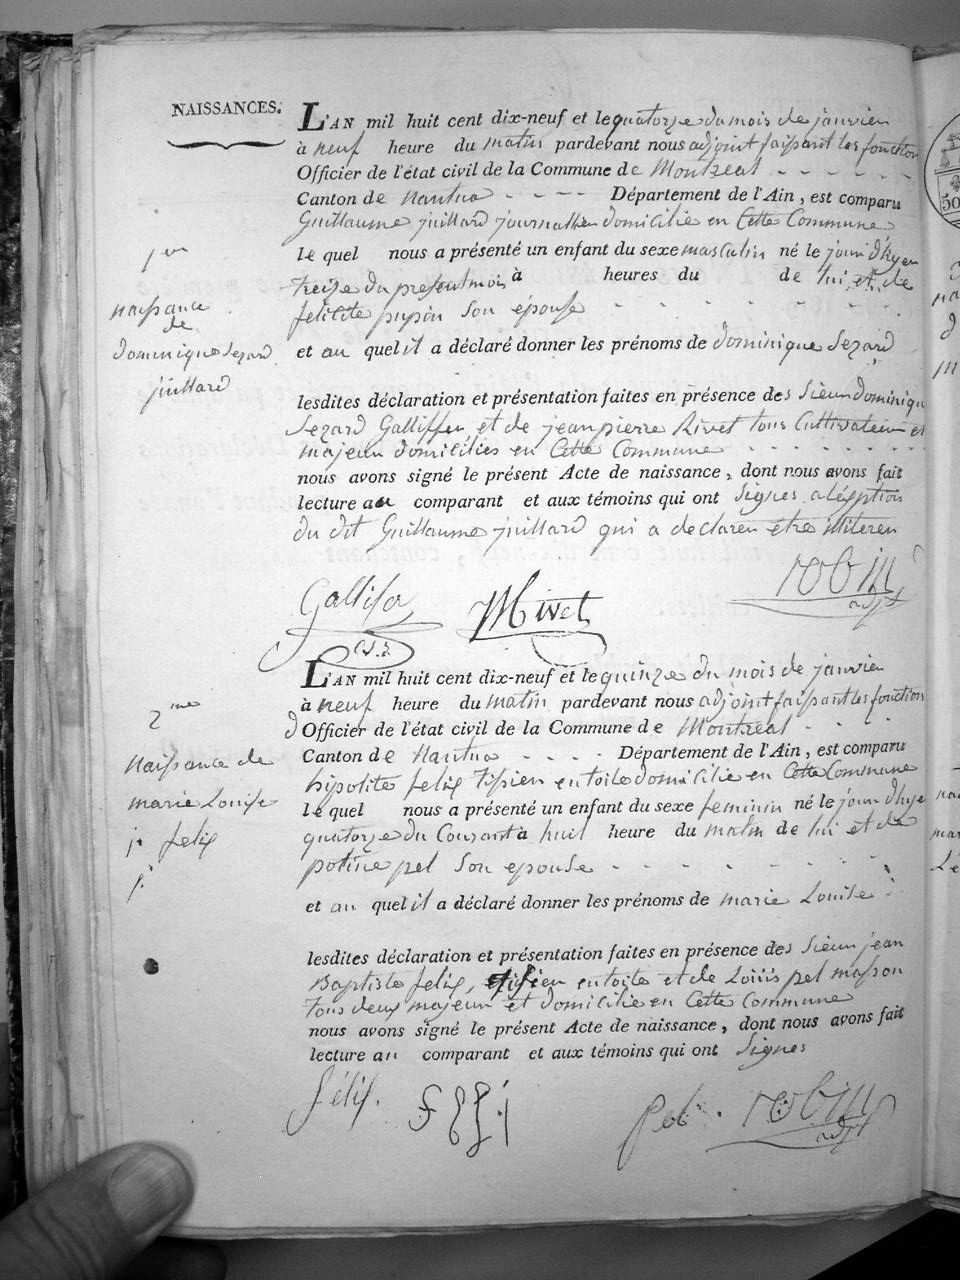 NAISSANCES.
L'AN mil huit cent dix-neuf et le quatorze du mois de janvier
à neuf heure du matin pardevant nous adjoint faissant les fonction
Officier de l'état civil de la Commune de Montreal
Canton de Nantua Département de l'Ain, est comparu
Guillaume juillard journallier domicilié en Cette Commune
le quel nous a présenté un enfant du sexe masculin né le jour d'hyer
treize du present mois à heures du de lui et de
felicite pupin son épouse
et au quel il a déclaré donner les prénoms de dominique Sezard
lesdites déclaration et présentation faites en présence des Sieur dominique
Sezard Galliffer et de jean pierre Rivet tous Cultivateur et
majeur domiciliés en Cette Commune
nous avons signé le présent Acte de naissance, dont nous avons fait
lecture au comparant et aux témoins qui ont signes a l'éxeption
du dit Guillaume juillard qui a declaren être illiteren
1er
naissance
de
dominique Sezard
juillard
Rivet
robin
adjt
L'AN mil huit cent dix-neuf et le quinze du mois de janvier
à neuf heure du matin pardevant nous adjoint faissant les fonction
d Officier de l'état civil de la Commune de Montreal
Canton de Nantua Département de l'Ain, est comparu
hipolite felix tissien en toile domicilie en Cette Commune
le quel nous a présenté un enfant du sexe feminin né le jour d'hyer
quatorze du Courant à huit heure du matin de lui et de
potine pel son epouse
et au quel il a déclaré donner les prénoms de marie Louise
lesdites déclaration et présentation faites en présence des Sieur jean
Baptiste felix, tissien en toile et de Louis pel masson
tous deux majeur et domicilie en Cette Commune
nous avons signé le présent Acte de naissance, dont nous avons fait
lecture au comparant et aux témoins qui ont signes
2me
naissance de
marie Louise
felix
félix.
robin
adjt